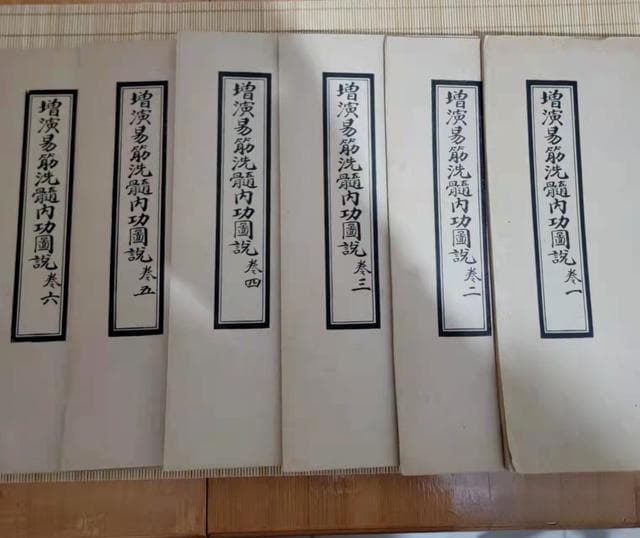 增演易筋洗髓內功圖說 卷一
增演易筋洗髓內功圖說 卷二
增演易筋洗髓內功圖說 卷三
增演易筋洗髓內功圖說 卷四
增演易筋洗髓內功圖說 卷五
增演易筋洗髓內功圖說 卷六